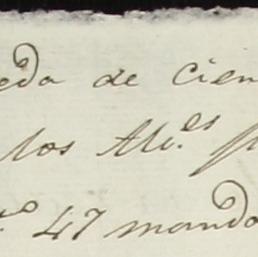 eda de cien
los Alv.es p
to 47 mando